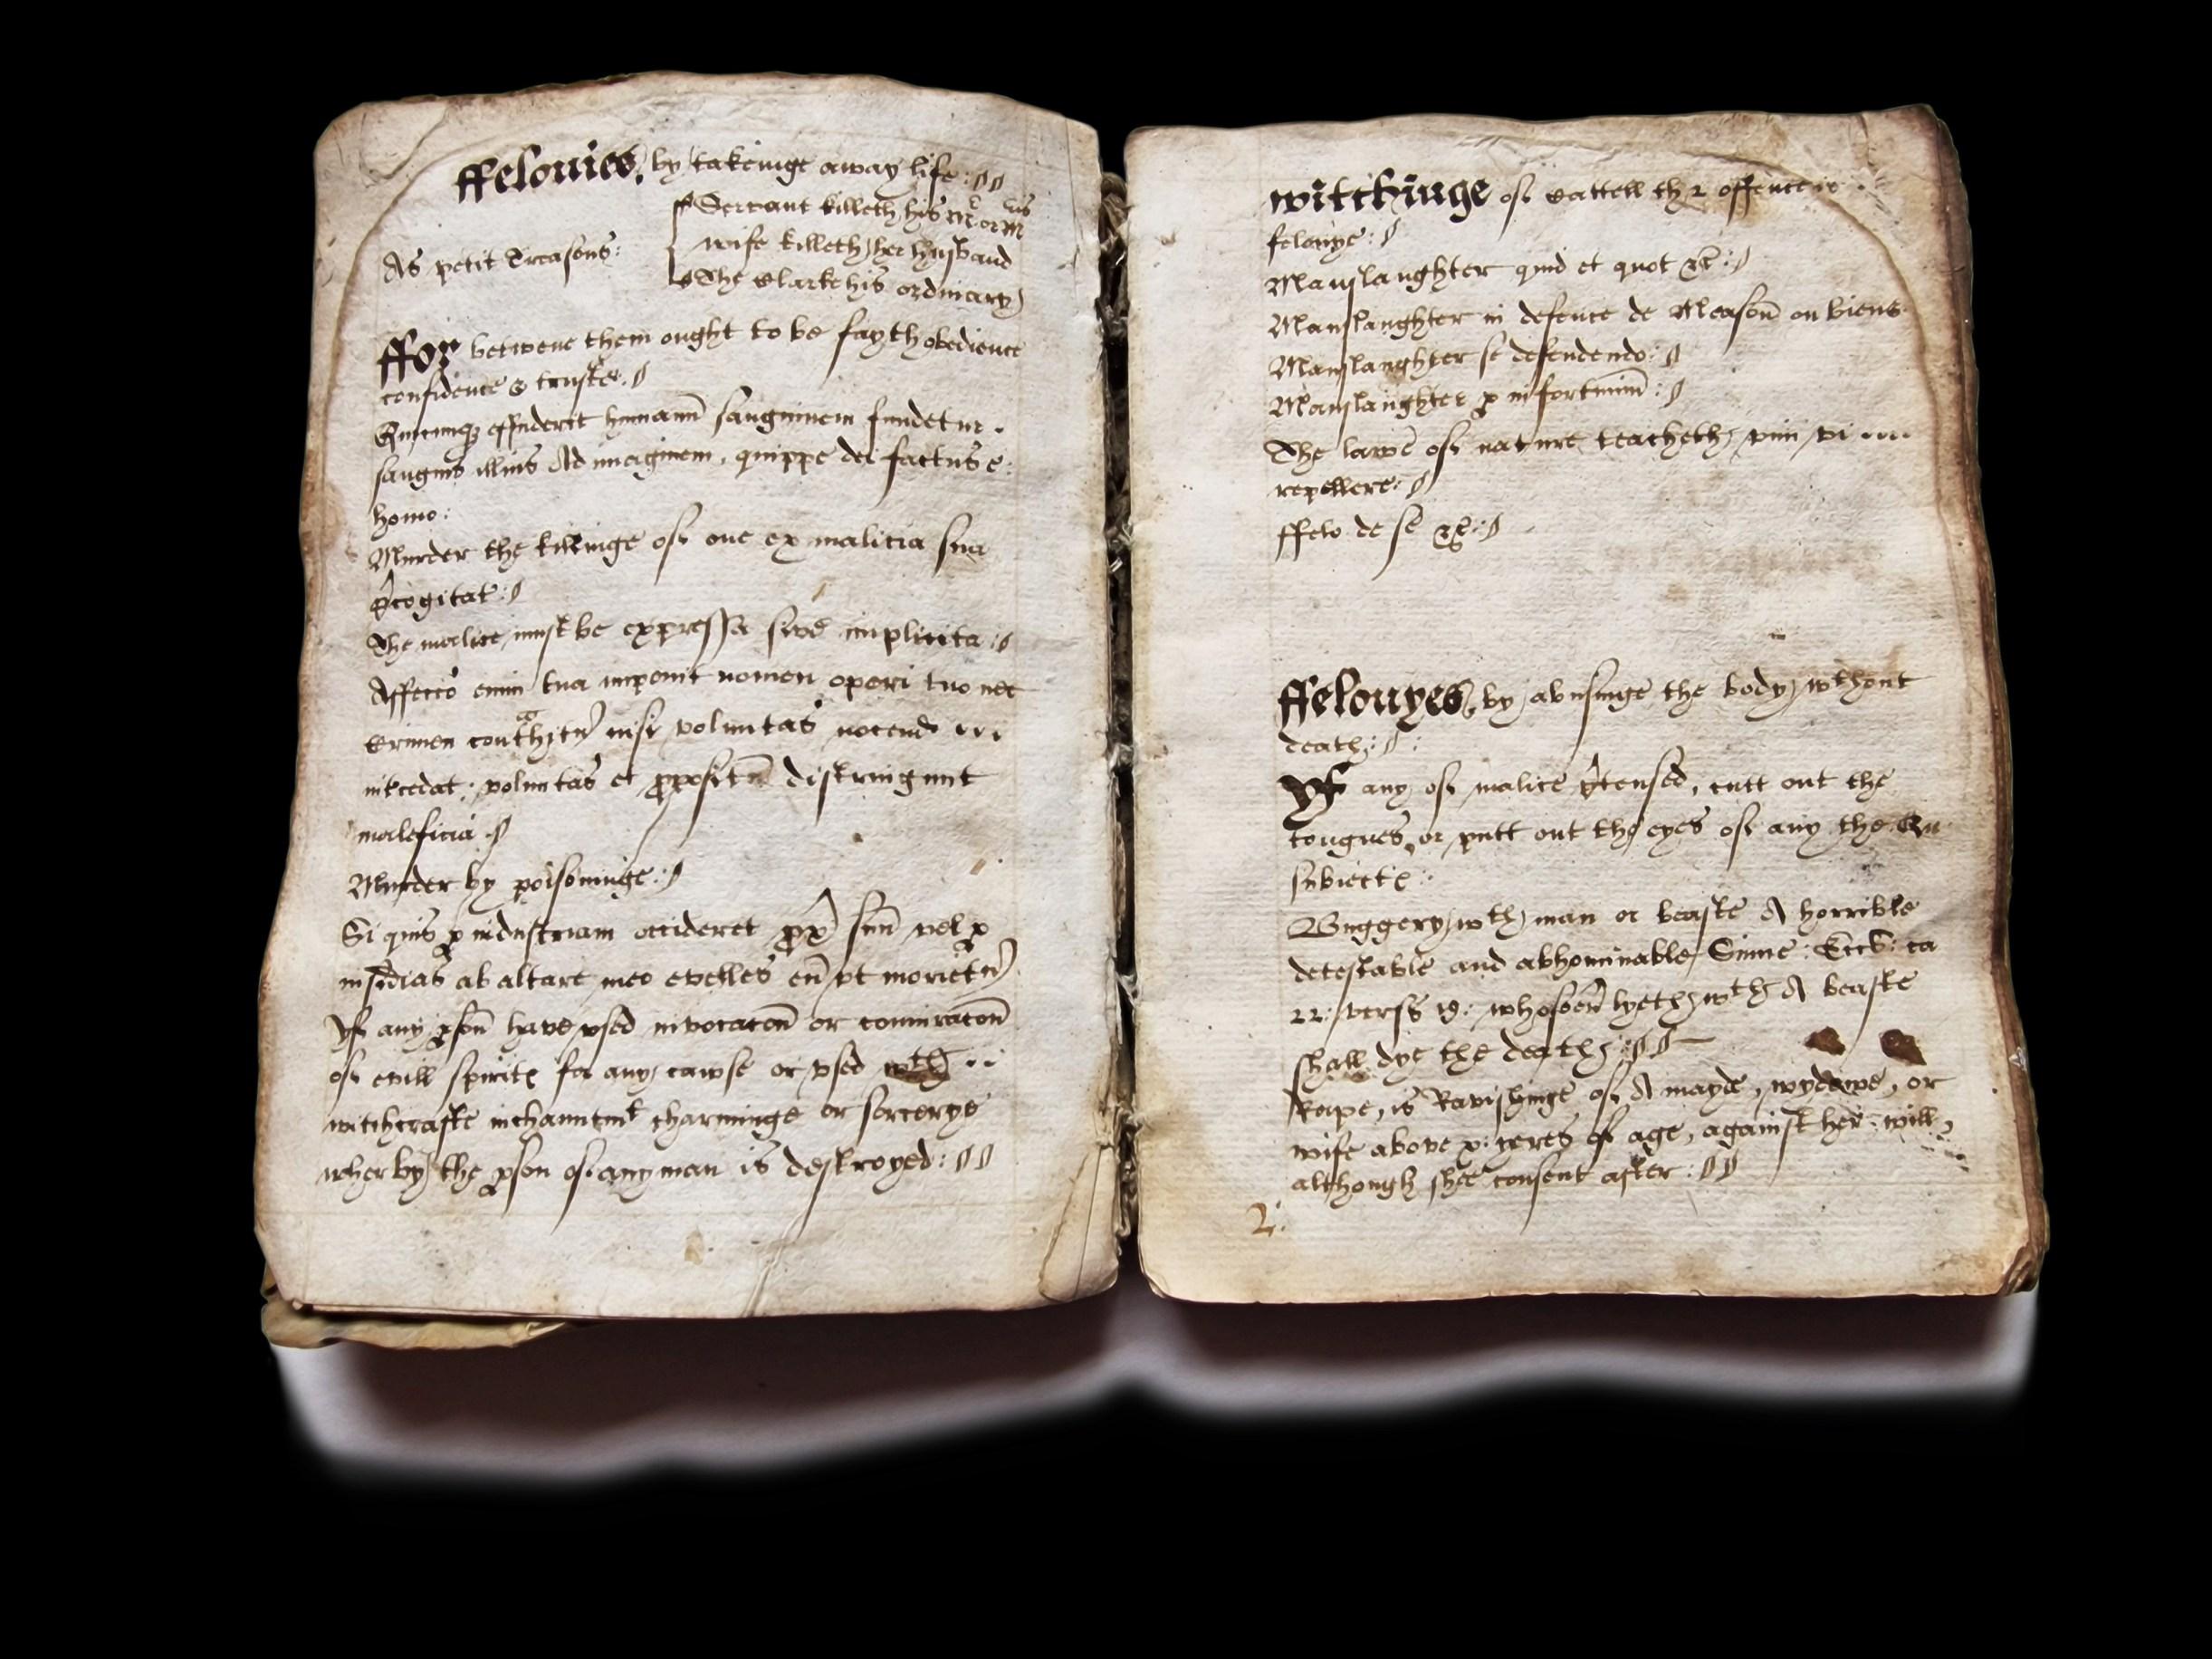 ffelonies, by takeinge away life:
As petit Treasons:
Servant killeth his Mr or Mris
wife killeth her husband
The Clarke his ordinary
ffor betwene them ought to be fayth obedience
confidence & truste.
Quicunq effuderit humanū sanguinem fundetur.
sanguis illius Ad imaginem, quippe dei factus e:
homo:
Murder the killinge of one ex malicia sua
p̄cogitat:
The malice must be expressa sive implicita:
Affecco enim tua imponit nomen operi tuo nec
Crimen nisi voluntas nocend
int̄cedat: voluntas et propositū distringunt
maleficia
Murder by poisoninge:
Si quis p industriam occideret prox̄ suū vel p
insidias ab altare meo evelles eū vt moriet
Yf any pson have vsed invocacon or coniuracon
of evill spirites for any cawse or vsed wth
witchcrafte inchauntmt charminge or sorcerye
wherby the pson of any man is destroyed:
witchinge of Cattell the 2 offence is
felonye:
Manslaughter quid et quot
Manslaughter in defence de Meason ou biens
Manslaughter se defendendo:
Manslaughter p infortuniū:
The lawe of nature teacheth, vim vi
repellere:
ffelo de se
ffelonyes, by abusinge the body wthout
death:
Yf any of malice p̄tensed, cutt out the
tongues, or putt out the eyes of any the Qu
subiectes:
Buggery wth man or beaste A horrible
detestable and abhominable Sinne: ca
22: verse 19: whosoeu lyeth wth A beaste
shall dye the death:
Rape, is Ravishinge of A mayde, wydowe, or
wife above x: yeres of age, against her will,
although shee consent after:
2: